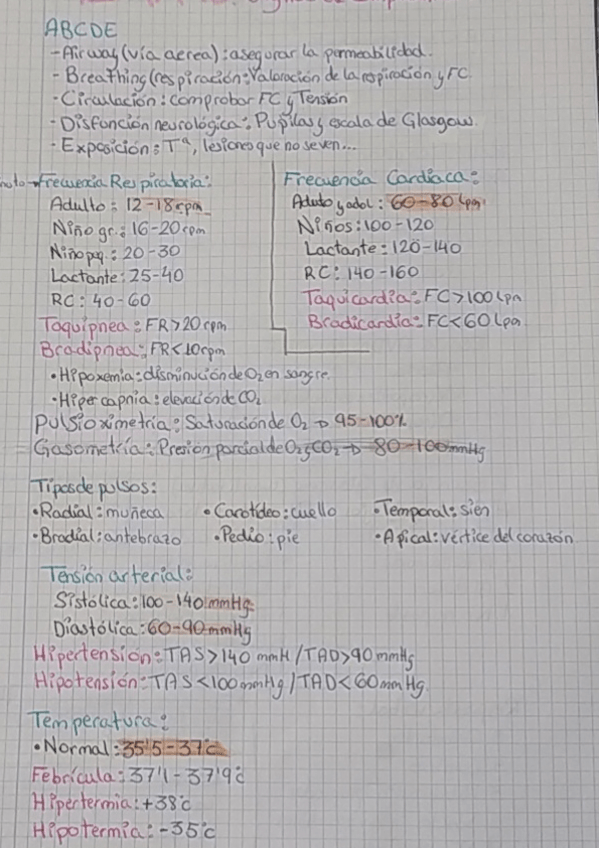 ABCDE
- Airway (vía aerea): asegurar la permeabilidad.
- Breathing (respiración: Valoración de la respiración y FC.
- Circulación: comprobar FC y Tensión
- Disfunción neurológica: Pupilas y escala de Glasgow.
- Exposición: Tª, lesiones que no se ven...
Frecuencia Respiratoria:
Adulto: 12-18 rpm
Niño gr.: 16-20 rpm
Niño pq.: 20-30
Lactante: 25-40
RC: 40-60
Taquipnea: FR>20 rpm
Bradipnea: FR<10 rpm
Frecuencia Cardiaca:
Adulto y adol: 60-80 lpm
Niños: 100-120
Lactante: 120-140
RC: 140-160
Taquicardia: FC>100 lpm
Bradicardia: FC<60 lpm
• Hipoxemia: disminución de O2 en sangre.
• Hipercapnia: elevación de CO2
Pulsioximetría: Saturación de O2 → 95-100%
Gasometría: Presión parcial de O2 y CO2 → 80-100 mmHg
Tipos de pulsos:
• Radial: muñeca • Carotídeo: cuello • Temporal: sien
• Bradial: antebrazo • Pedio: pie • Apical: vértice del corazón
Tensión arterial:
Sistólica: 100-140 mmHg
Diastólica: 60-90 mmHg
Hipertensión: TAS>140 mmH/TAD>90 mmHg
Hipotensión: TAS<100 mmHg/TAD<60 mmHg
Temperatura:
• Normal: 35'5-37ºc
Febrícula: 37'1-37'9ºc
Hipertermia: +38ºc
Hipotermia: -35ºc